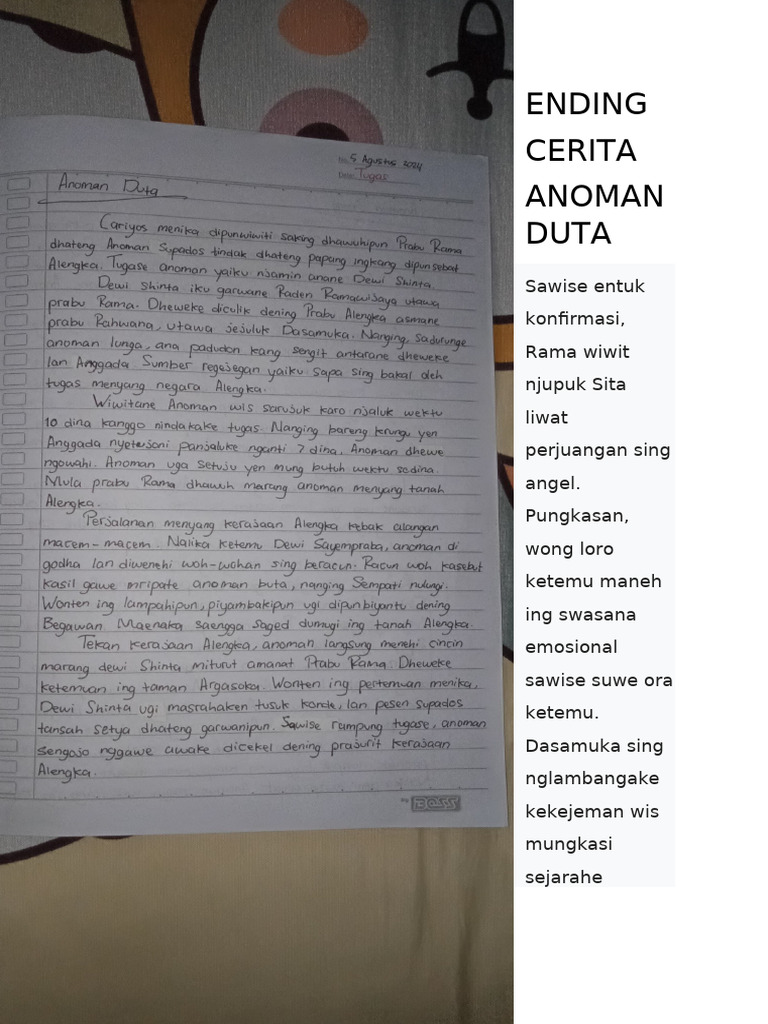 No. 5 Agustus 2024
Date. Tugas
Anoman Duta
Cariyos menika dipunwiwiti saking dhawuhipun Prabu Rama
dhateng Anoman Supados tindak dhateng papang ingkang dipunsebat
Alengka. Tugase anoman yaiku njamin anane Dewi Shinta.
Dewi Shinta iku garwane Raden Ramawijaya utawa
prabu Rama. Dheweke diculik dening Prabu Alengka asmane
prabu Rahwana, utawa jejuluk Dasamuka. Nanging, sadurunge
anoman lunga, ana padudon kang sengit antarane dheweke
lan Anggada. Sumber regejegan yaiku sapa sing bakal oleh
tugas menyang negara Alengka.
Wiwitane Anoman wis sarujuk karo njaluk wektu
10 dina kanggo nindakake tugas. Nanging bareng krungu yen
Anggada nyetujoni panjaluke nganti 7 dina. Anoman dhewe
ngowahi. Anoman uga setuju yen mung butuh wektu sedina.
Mula prabu Rama dhawuh marang anoman menyang tanah
Alengka.
Perjalanan menyang kerajaan Alengka kebak alangan
macem-macem. Nalika ketemu Dewi Sayempraba, anoman di
godha lan diwenehi woh-wohan sing beracun. Racun woh kasebut
kasil gawe mripate anoman buta, nanging Sempati nulungi.
Wonten ing lampahipun, piyambakipun ugi dipunbiyantu dening
Begawan Maenaka saengga saged dumugi ing tanah Alengka.
Tekan kerajaan Alengka, anoman langsung menehi cincin
marang dewi Shinta miturut amanat Prabu Rama. Dheweke
ketemuan ing taman Argasoka. Wonten ing pertemuan menika,
Dewi Shinta ugi masrahaken tusuk konde, lan pesen supados
tansah setya dhateng garwanipun. Sawise rampung tugase, anoman
sengojo nggawe awake dicekel dening prajurit kerajaan
Alengka.
BOSS
ENDING
CERITA
ANOMAN
DUTA
Sawise entuk
konfirmasi,
Rama wiwit
njupuk Sita
liwat
perjuangan sing
angel.
Pungkasan,
wong loro
ketemu maneh
ing swasana
emosional
sawise suwe ora
ketemu.
Dasamuka sing
nglambangake
kekejeman wis
mungkasi
sejarahe